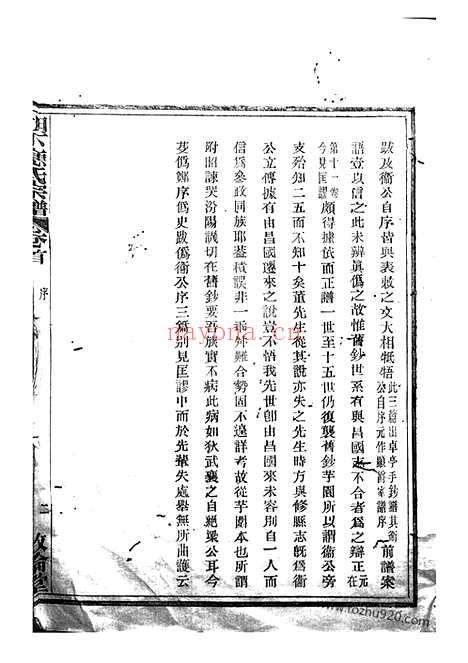 跋及衞公自序皆與表敕之文大相牴牾此三篇出卓亭手鈔譜其衞公自序元作顯爵家譜序前譜案
語壹以信之此未辨眞僞之故惟舊鈔世系有與昌國志不合者爲之辯正在元
第十一卷今見匡謬頗得據依而正譜一世至十五世仍復襲舊鈔芋園所以謂衞公旁
支殆知二五而不知十矣董先生從其說亦失之先生時方與修縣志旣爲衞
公立傳據有由昌國遷來之說豈不悟我先世卽由昌國來未容別自一人而
信爲參政同族耶蓋積誤非一乖於難合勢固不遑詳考故從芋園本也所謂
附招諫哭汾陽議切在舊鈔要吾族實不病此病如狄武襄之自絕梁公耳今
芟僞鄭序僞史跋僞衞公序三篇別見匡謬中而於先輩失處舉無所曲護云
宗譜
卷首
序
二
敘倫堂
nayona.cn
www.tozhu920.com